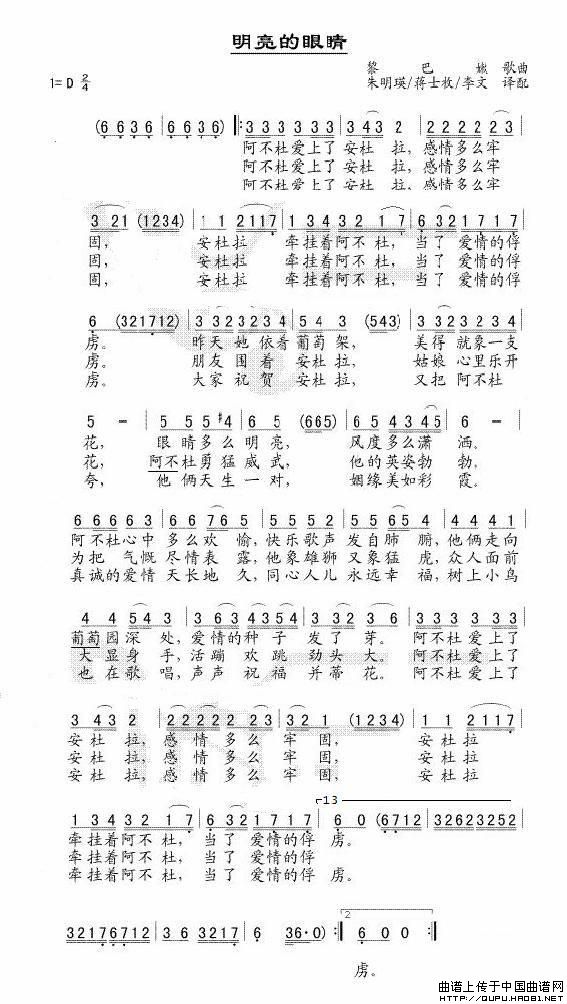 明亮的眼睛
黎巴嫩 歌曲
1= D 2/4
朱明瑛/蒋士枚/李文 译配
(6 6 3 6 | 6 6 3 6) |: 3 3 3 3 3 3 | 3 4 3 2 | 2 2 2 2 2 3 |
阿不杜爱上了 安杜拉, 感情多么牢
阿不杜爱上了 安杜拉, 感情多么牢
阿不杜爱上了 安杜拉, 感情多么牢
3 21 (1234) | 1 1 2117 | 1 34 32 17 | 6 32 1717 |
固, 安杜拉 牵挂着阿不杜, 当了 爱情的俘
固, 安杜拉 牵挂着阿不杜, 当了 爱情的俘
固, 安杜拉 牵挂着阿不杜, 当了 爱情的俘
6 (321712) | 3 323234 | 5 4 3 (543) | 2 2 3 4 3 4 |
虏。 昨天她依着葡萄架, 美得就象一支
虏。 朋友围着安杜拉, 姑娘心里乐开
虏。 大家祝贺安杜拉, 又把阿不杜
5 - | 5 5 5 #4 | 6 5 (665) | 6 5 4 3 4 5 | 6 - |
花, 眼睛多么明亮, 风度多么潇洒。
花, 阿不杜勇猛威武, 他的英姿勃勃,
夸, 他俩天生一对, 姻缘美如彩霞。
6 6 6 6 3 | 6 6 76 5 | 5 5 5 5 | 5 5 65 4 | 4 4 4 4 |
阿不杜心中 多么欢愉, 快乐歌声 发自肺腑, 他俩走向
为把气慨 尽情表露, 他象雄狮 又象猛虎, 众人面前
真诚的爱情 天长地久, 同心人儿 永远幸福, 树上小鸟
4 4 54 3 | 3 3 3 3 3 | 3 3 43 2 | 3 3 3 3 3 3 |
葡萄园深处, 爱情的种子发了芽。 阿不杜爱上了
大显身手, 活蹦欢跳劲头大。 阿不杜爱上了
也在歌唱, 声声祝福并蒂花。 阿不杜爱上了
3 43 2 | 2 2 2 2 2 2 3 | 3 2 1 (1234) | 1 1 2117 |
安杜拉, 感情多么 牢固, 安杜拉
安杜拉, 感情多么 牢固, 安杜拉
安杜拉, 感情多么 牢固, 安杜拉
13
1 34 32 17 | 6 32 1717 | 6 0 (6712 | 32623252 |
牵挂着阿不杜, 当了 爱情的俘 虏。
牵挂着阿不杜, 当了 爱情的俘
牵挂着阿不杜, 当了 爱情的俘 虏。
32176712 | 3 3217 | 6 36·0) :| 2 6 0 0 :|
虏。
曲谱上传于中国曲谱网
http://QUPU.HAO81.NET